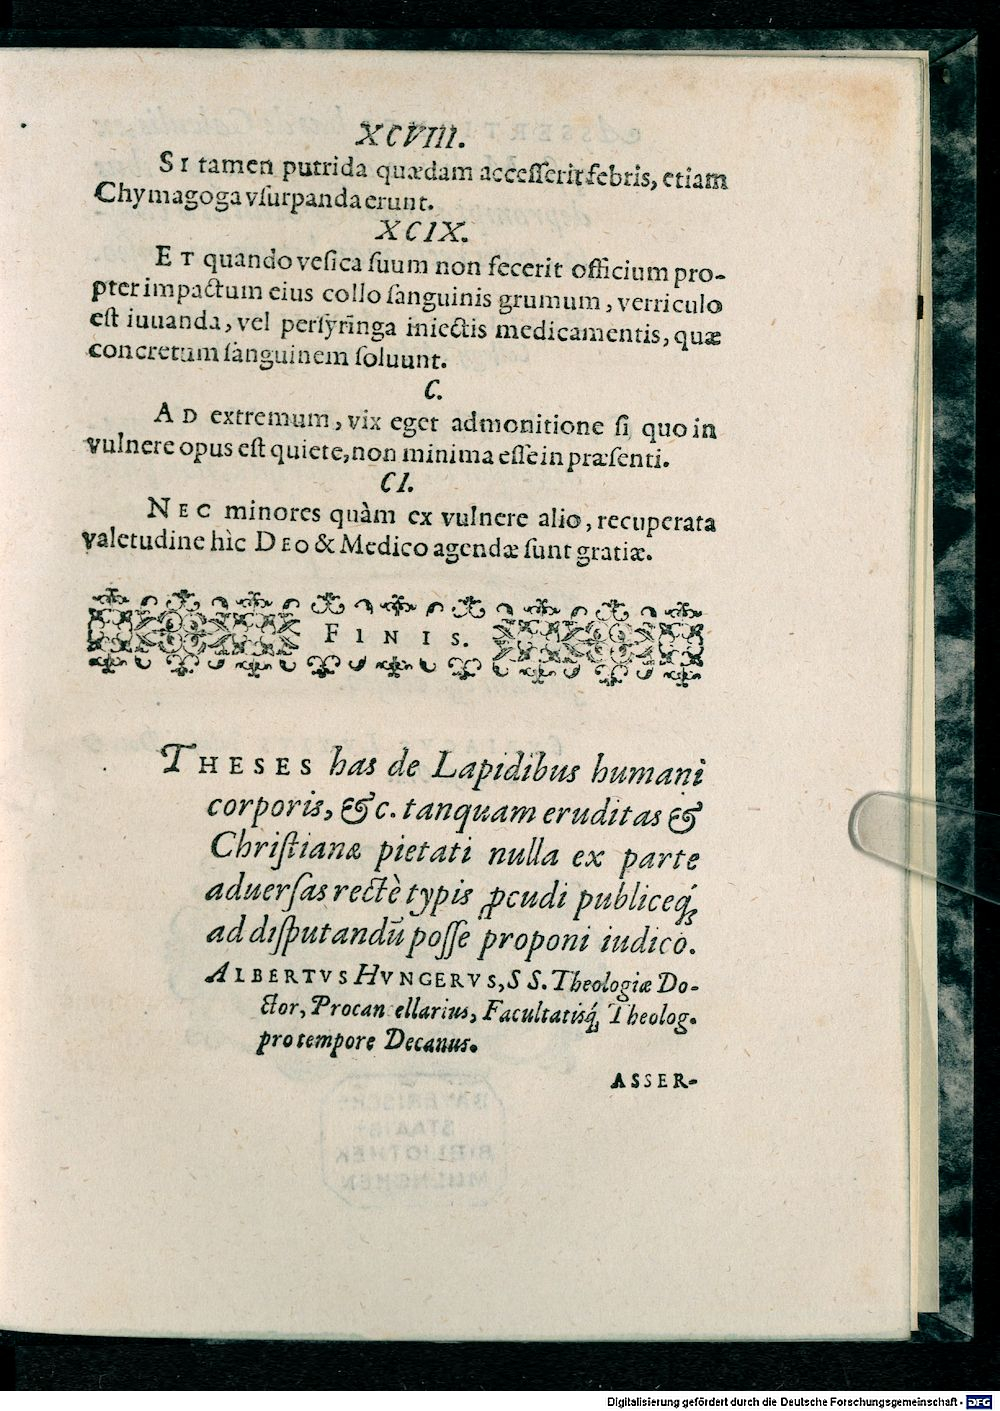 XCVIII.
SI tamen putrida quædam accesserit febris, etiam
Chymagoga vsurpanda erunt.
XCIX.
ET quando vesica suum non fecerit officium pro-
pter impactum eius collo sanguinis grumum, verriculo
est iuuanda, vel per syringa iniectis medicamentis, quæ
concretum sanguinem soluunt.
C.
AD extremum, vix eget admonitione si quo in
vulnere opus est quiete, non minima esse in præsenti.
CI.
NEC minores quàm ex vulnere alio, recuperata
valetudine hìc DEO & Medico agendæ sunt gratiæ.
FINIS.
THESES has de Lapidibus humani
corporis, &c. tanquam eruditas &
Christianæ pietati nulla ex parte
aduersas rectè typis ꝓcudi publiceq́;
ad disputandū posse proponi iudico.
ALBERTVS HVNGERVS, SS. Theologiæ Do-
ctor, Procancellarius, Facultatisq́; Theolog.
pro tempore Decanus.
ASSER-
BAYERISCHE
STAATS-
BIBLIOTHEK
MÜNCHEN
Digitalisierung gefördert durch die Deutsche Forschungsgemeinschaft - DFG